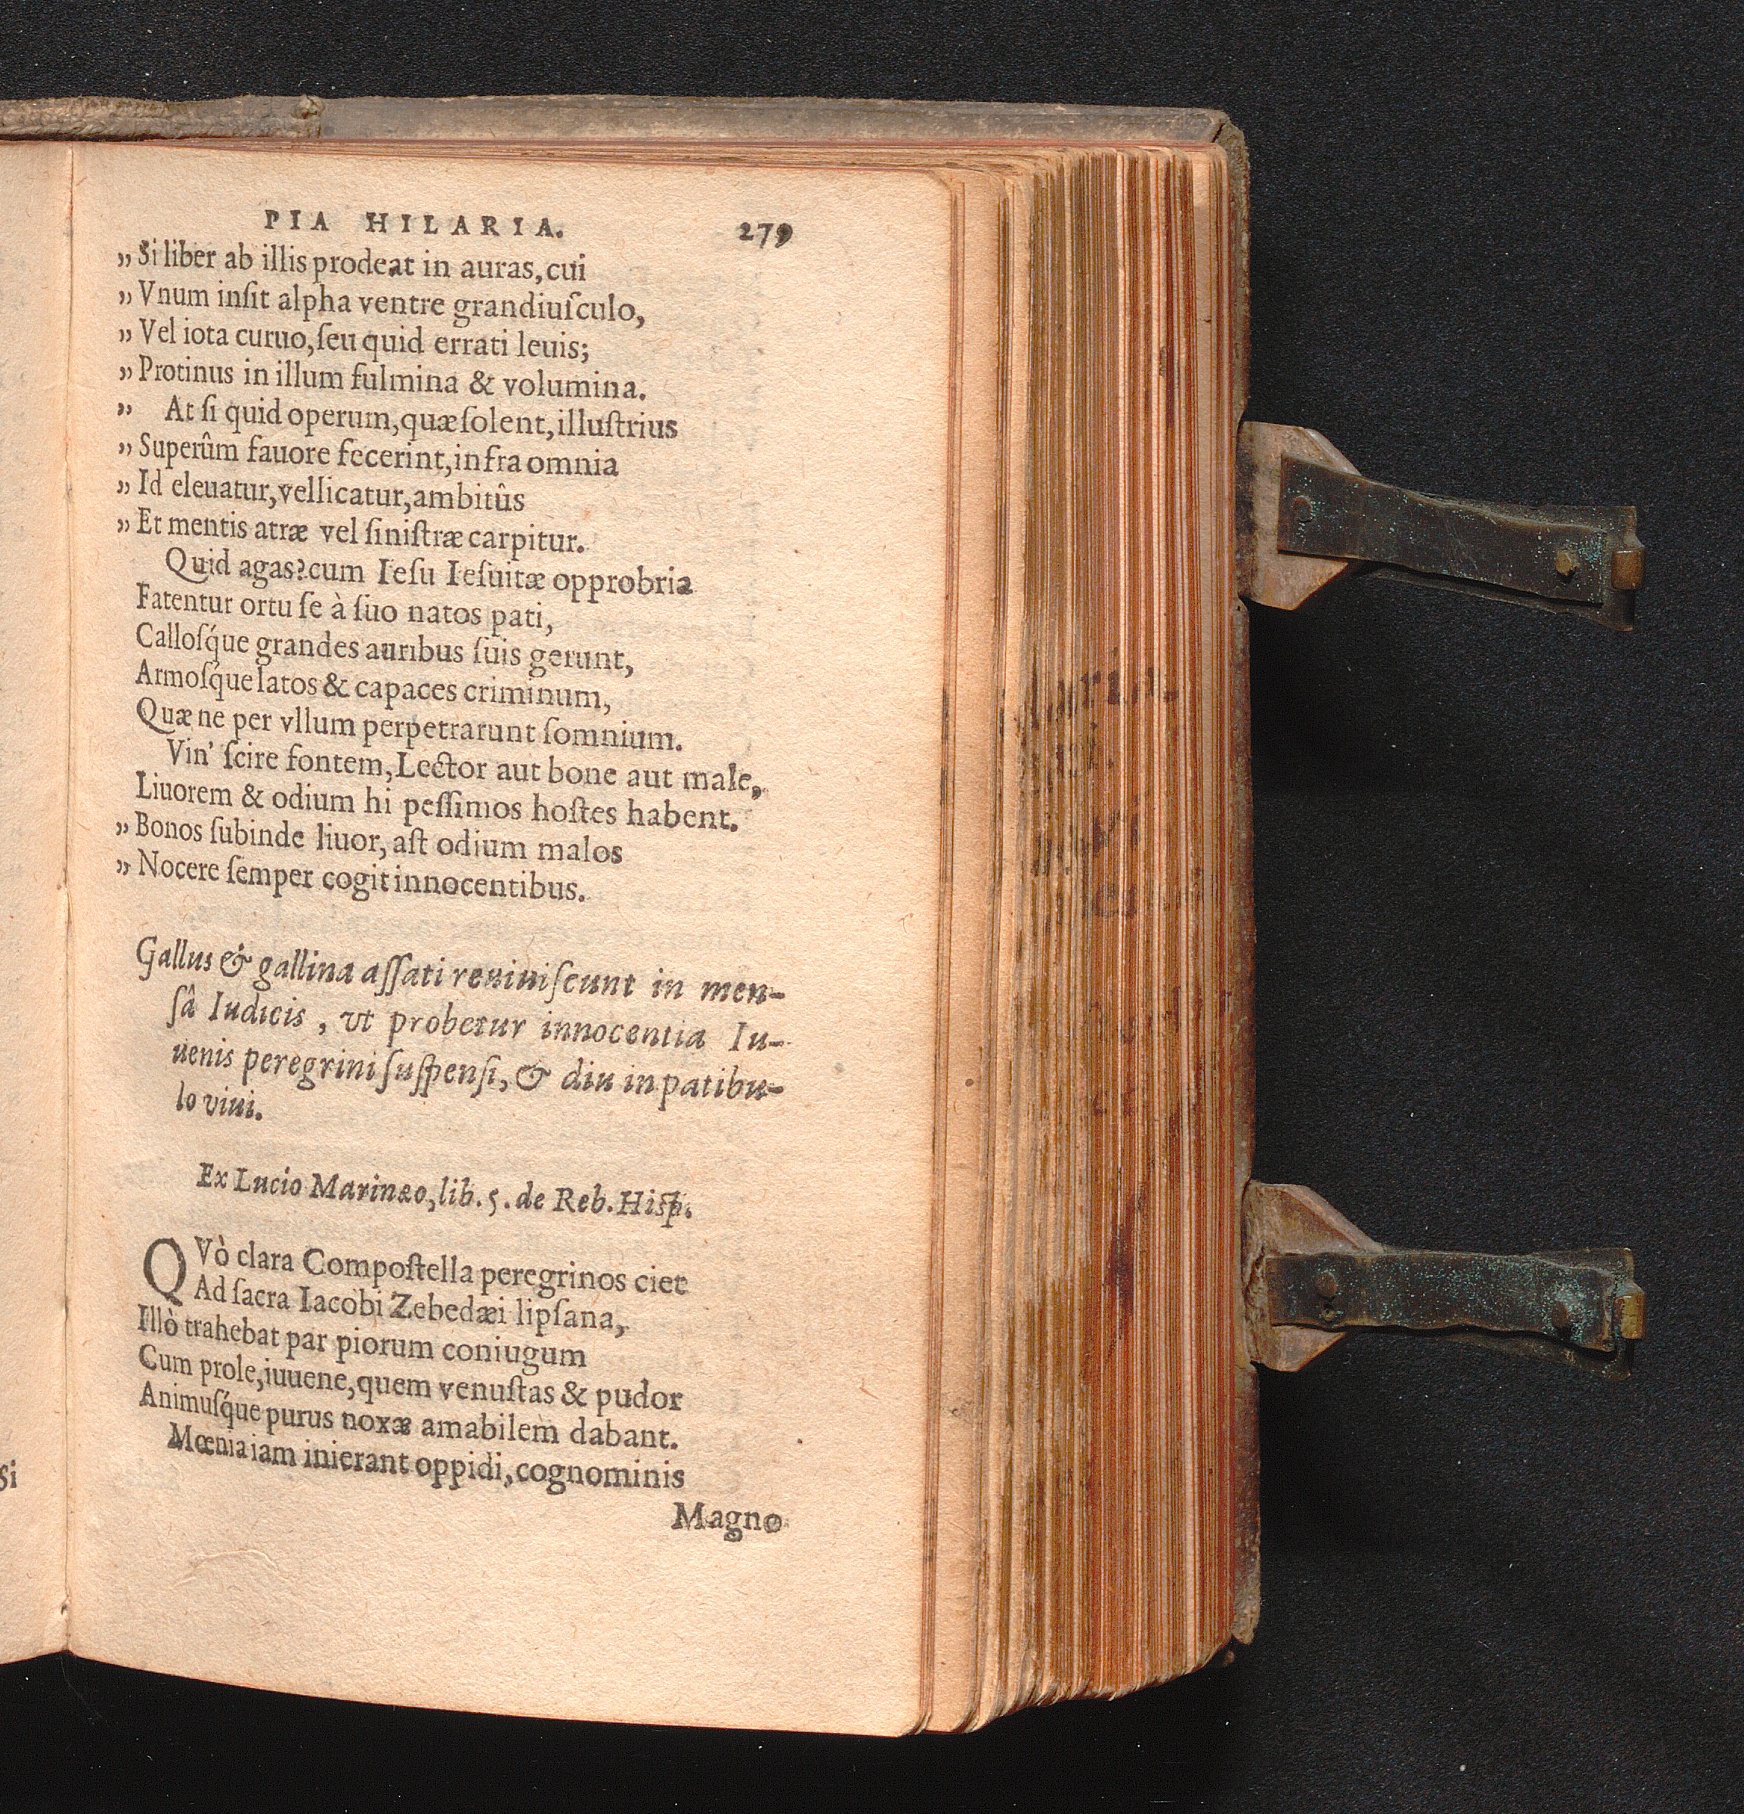 PIA HILARIA. 279
„ Si liber ab illis prodeat in auras, cui
„ Vnum inſit alpha ventre grandiuſculo,
„ Vel iota curuo, ſeu quid errati leuis;
„ Protinus in illum fulmina & volumina.
„ At ſi quid operum, quæ ſolent, illuſtrius
„ Superûm fauore fecerint, infra omnia
„ Id eleuatur, vellicatur, ambitûs
„ Et mentis atræ vel ſiniſtræ carpitur.
Quid agas? cum Ieſu Ieſuitæ opprobria
Fatentur ortu ſe à ſuo natos pati,
Calloſq́ue grandes auribus ſuis gerunt,
Armoſq́ue latos & capaces criminum,
Quæ ne per vllum perpetrarunt ſomnium.
Vin' ſcire fontem, Lector aut bone aut male,
Liuorem & odium hi peſſimos hoſtes habent.
„ Bonos ſubinde liuor, aſt odium malos
„ Nocere ſemper cogit innocentibus.
Gallus & gallina aſſati reuiuiſcunt in men-
ſâ Iudicis, vt probetur innocentia Iu-
uenis peregrini ſuſpenſi, & diu in patibu-
lo viui.
Ex Lucio Marinæo, lib. 5. de Reb. Hiſp.
QVò clara Compoſtella peregrinos ciet
Ad ſacra Iacobi Zebedæi lipſana,
Illò trahebat par piorum coniugum
Cum prole, iuuene, quem venuſtas & pudor
Animuſq́ue purus noxæ amabilem dabant.
Mœnia iam inierant oppidi, cognominis
Magno
Si